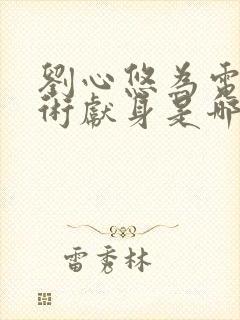 劉心悠為電
術獻身是哪
雷秀林